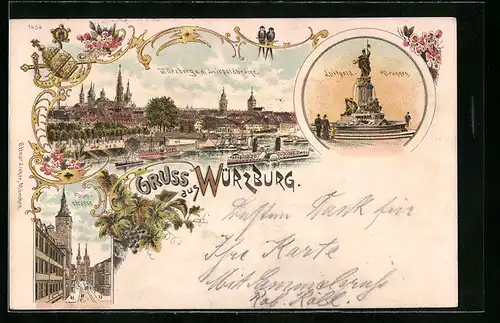 1454
Würzburg v. d. Luitpoldbrücke.
Luitpold- Brunnen
Ottmar Zieher, München.
GRUSS aus WÜRZBURG.
Dom-
strasse
Besten Dank für
Ihre Karte
Mit Sammelgruß
Rob. Röll.